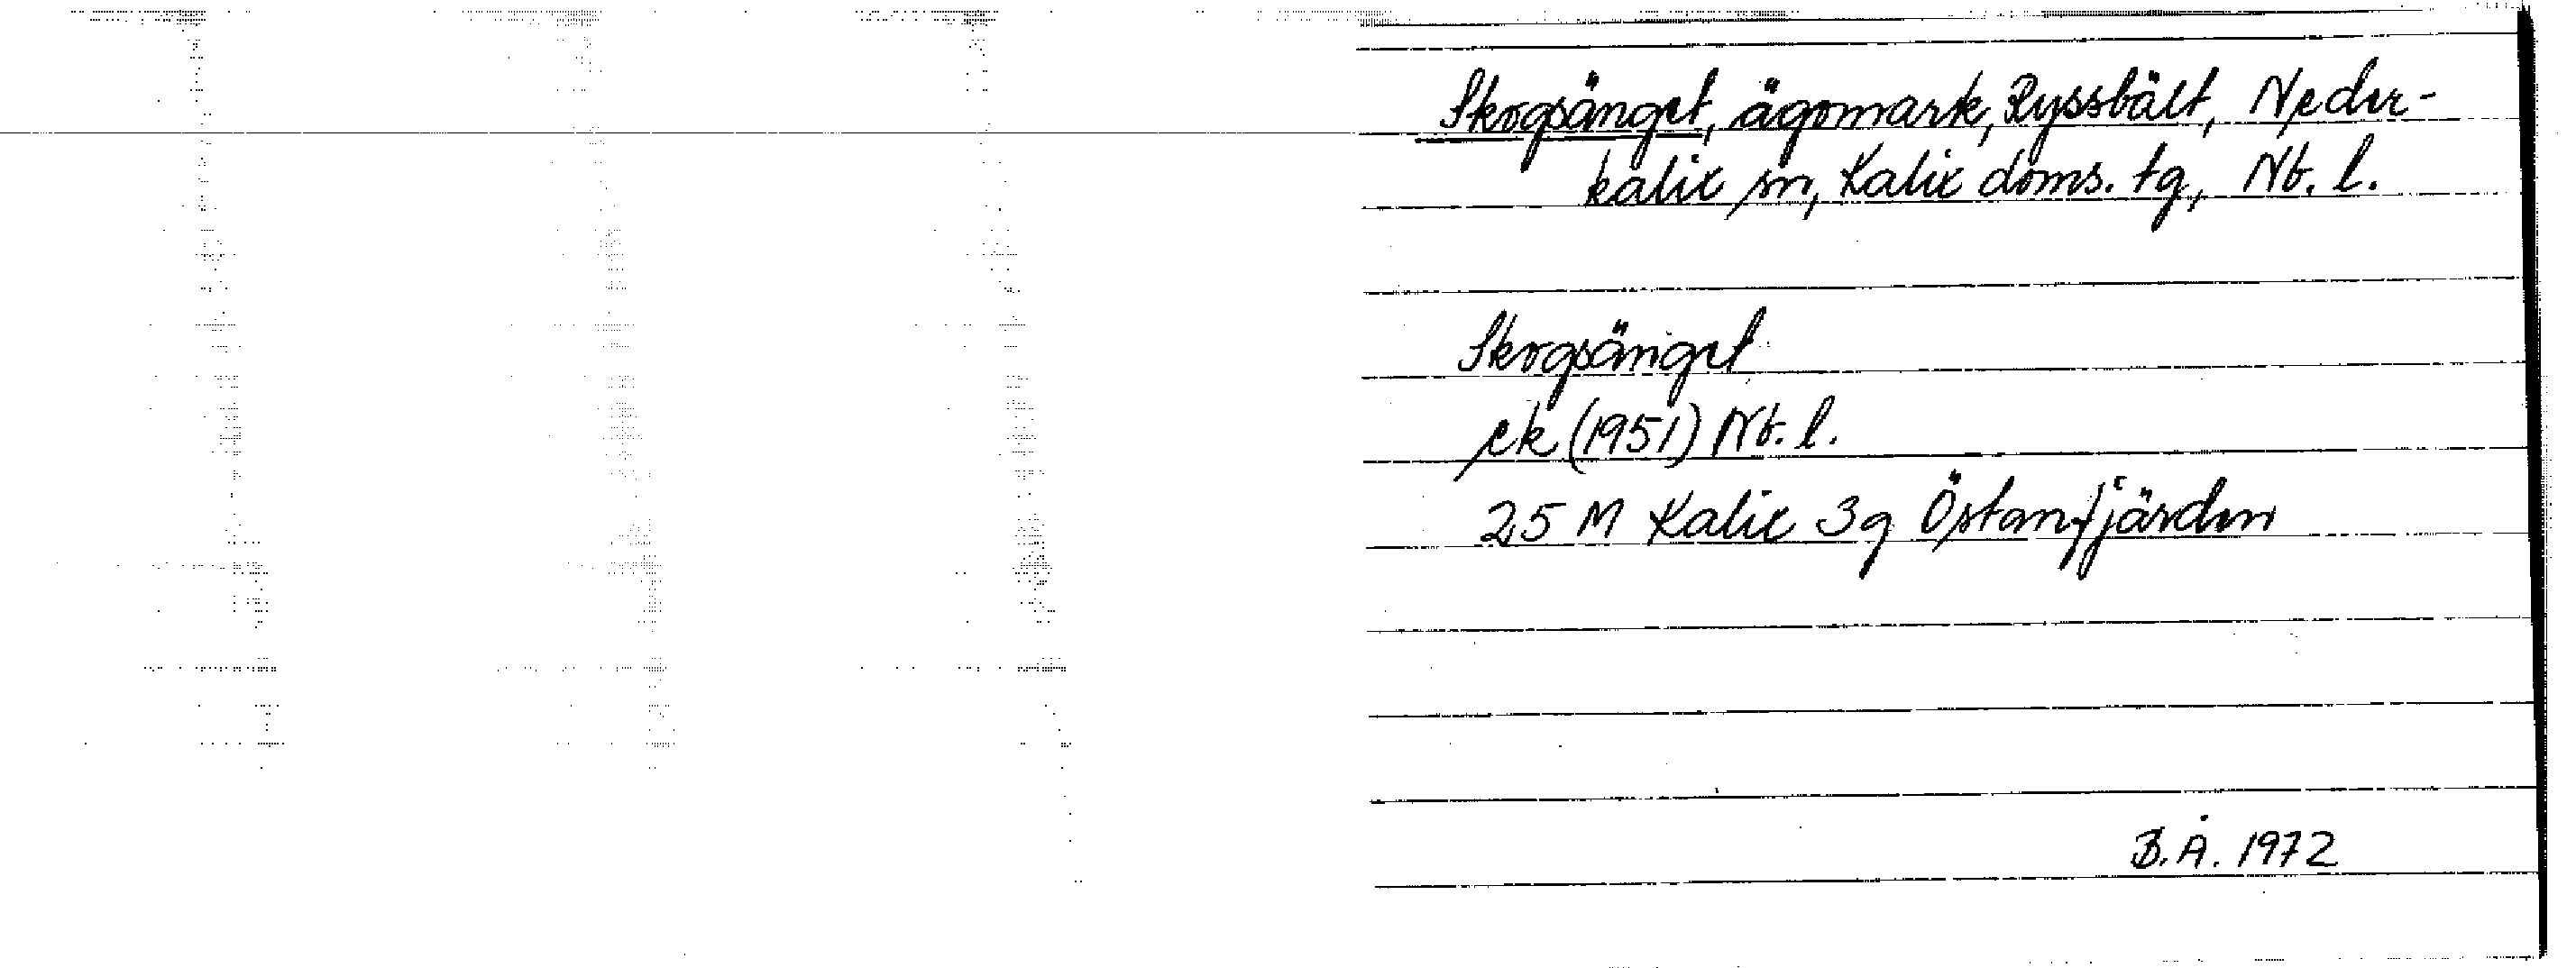 Skogsänget, ägomark, Ryssbält, Neder-
kalix sn, Kalix doms. tg, Nb. l.
Skogsänget
ek (1951) Nb. l.
25 M Kalix 3g Östanfjärden
B.Å. 1972